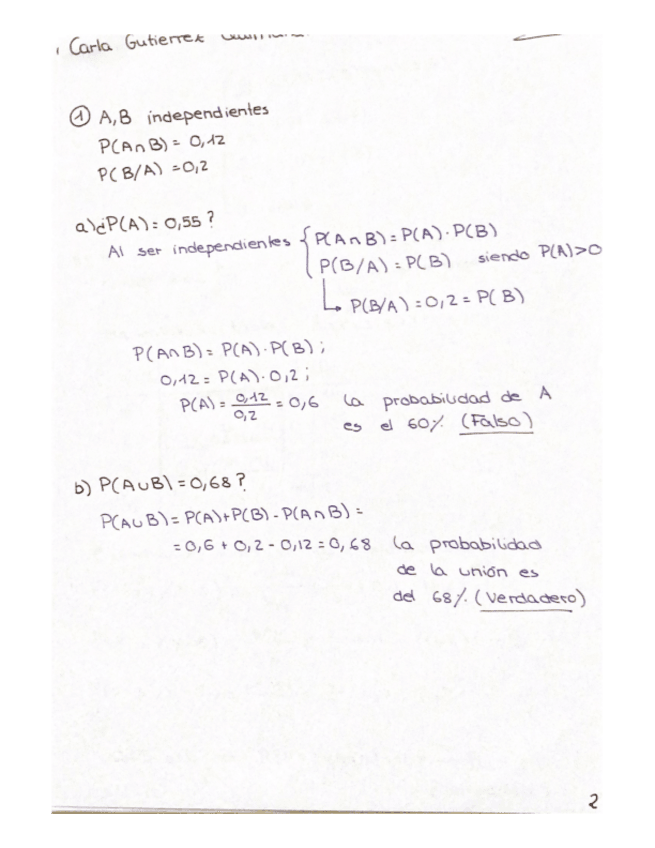 Carla Gutierrez
① A,B independientes
P(A∩B) = 0,12
P(B/A) = 0,2
a) ¿P(A) = 0,55?
Al ser independientes { P(A∩B) = P(A)·P(B)
P(B/A) = P(B) siendo P(A)>0
↳ P(B/A) = 0,2 = P(B)
P(A∩B) = P(A)·P(B);
0,12 = P(A)·0,2;
P(A) = 0,12/0,2 = 0,6 La probabilidad de A
es el 60% (Falso)
b) P(A∪B) = 0,68?
P(A∪B) = P(A)+P(B)-P(A∩B) =
= 0,6 + 0,2 - 0,12 = 0,68 La probabilidad
de la unión es
del 68% (Verdadero)
2